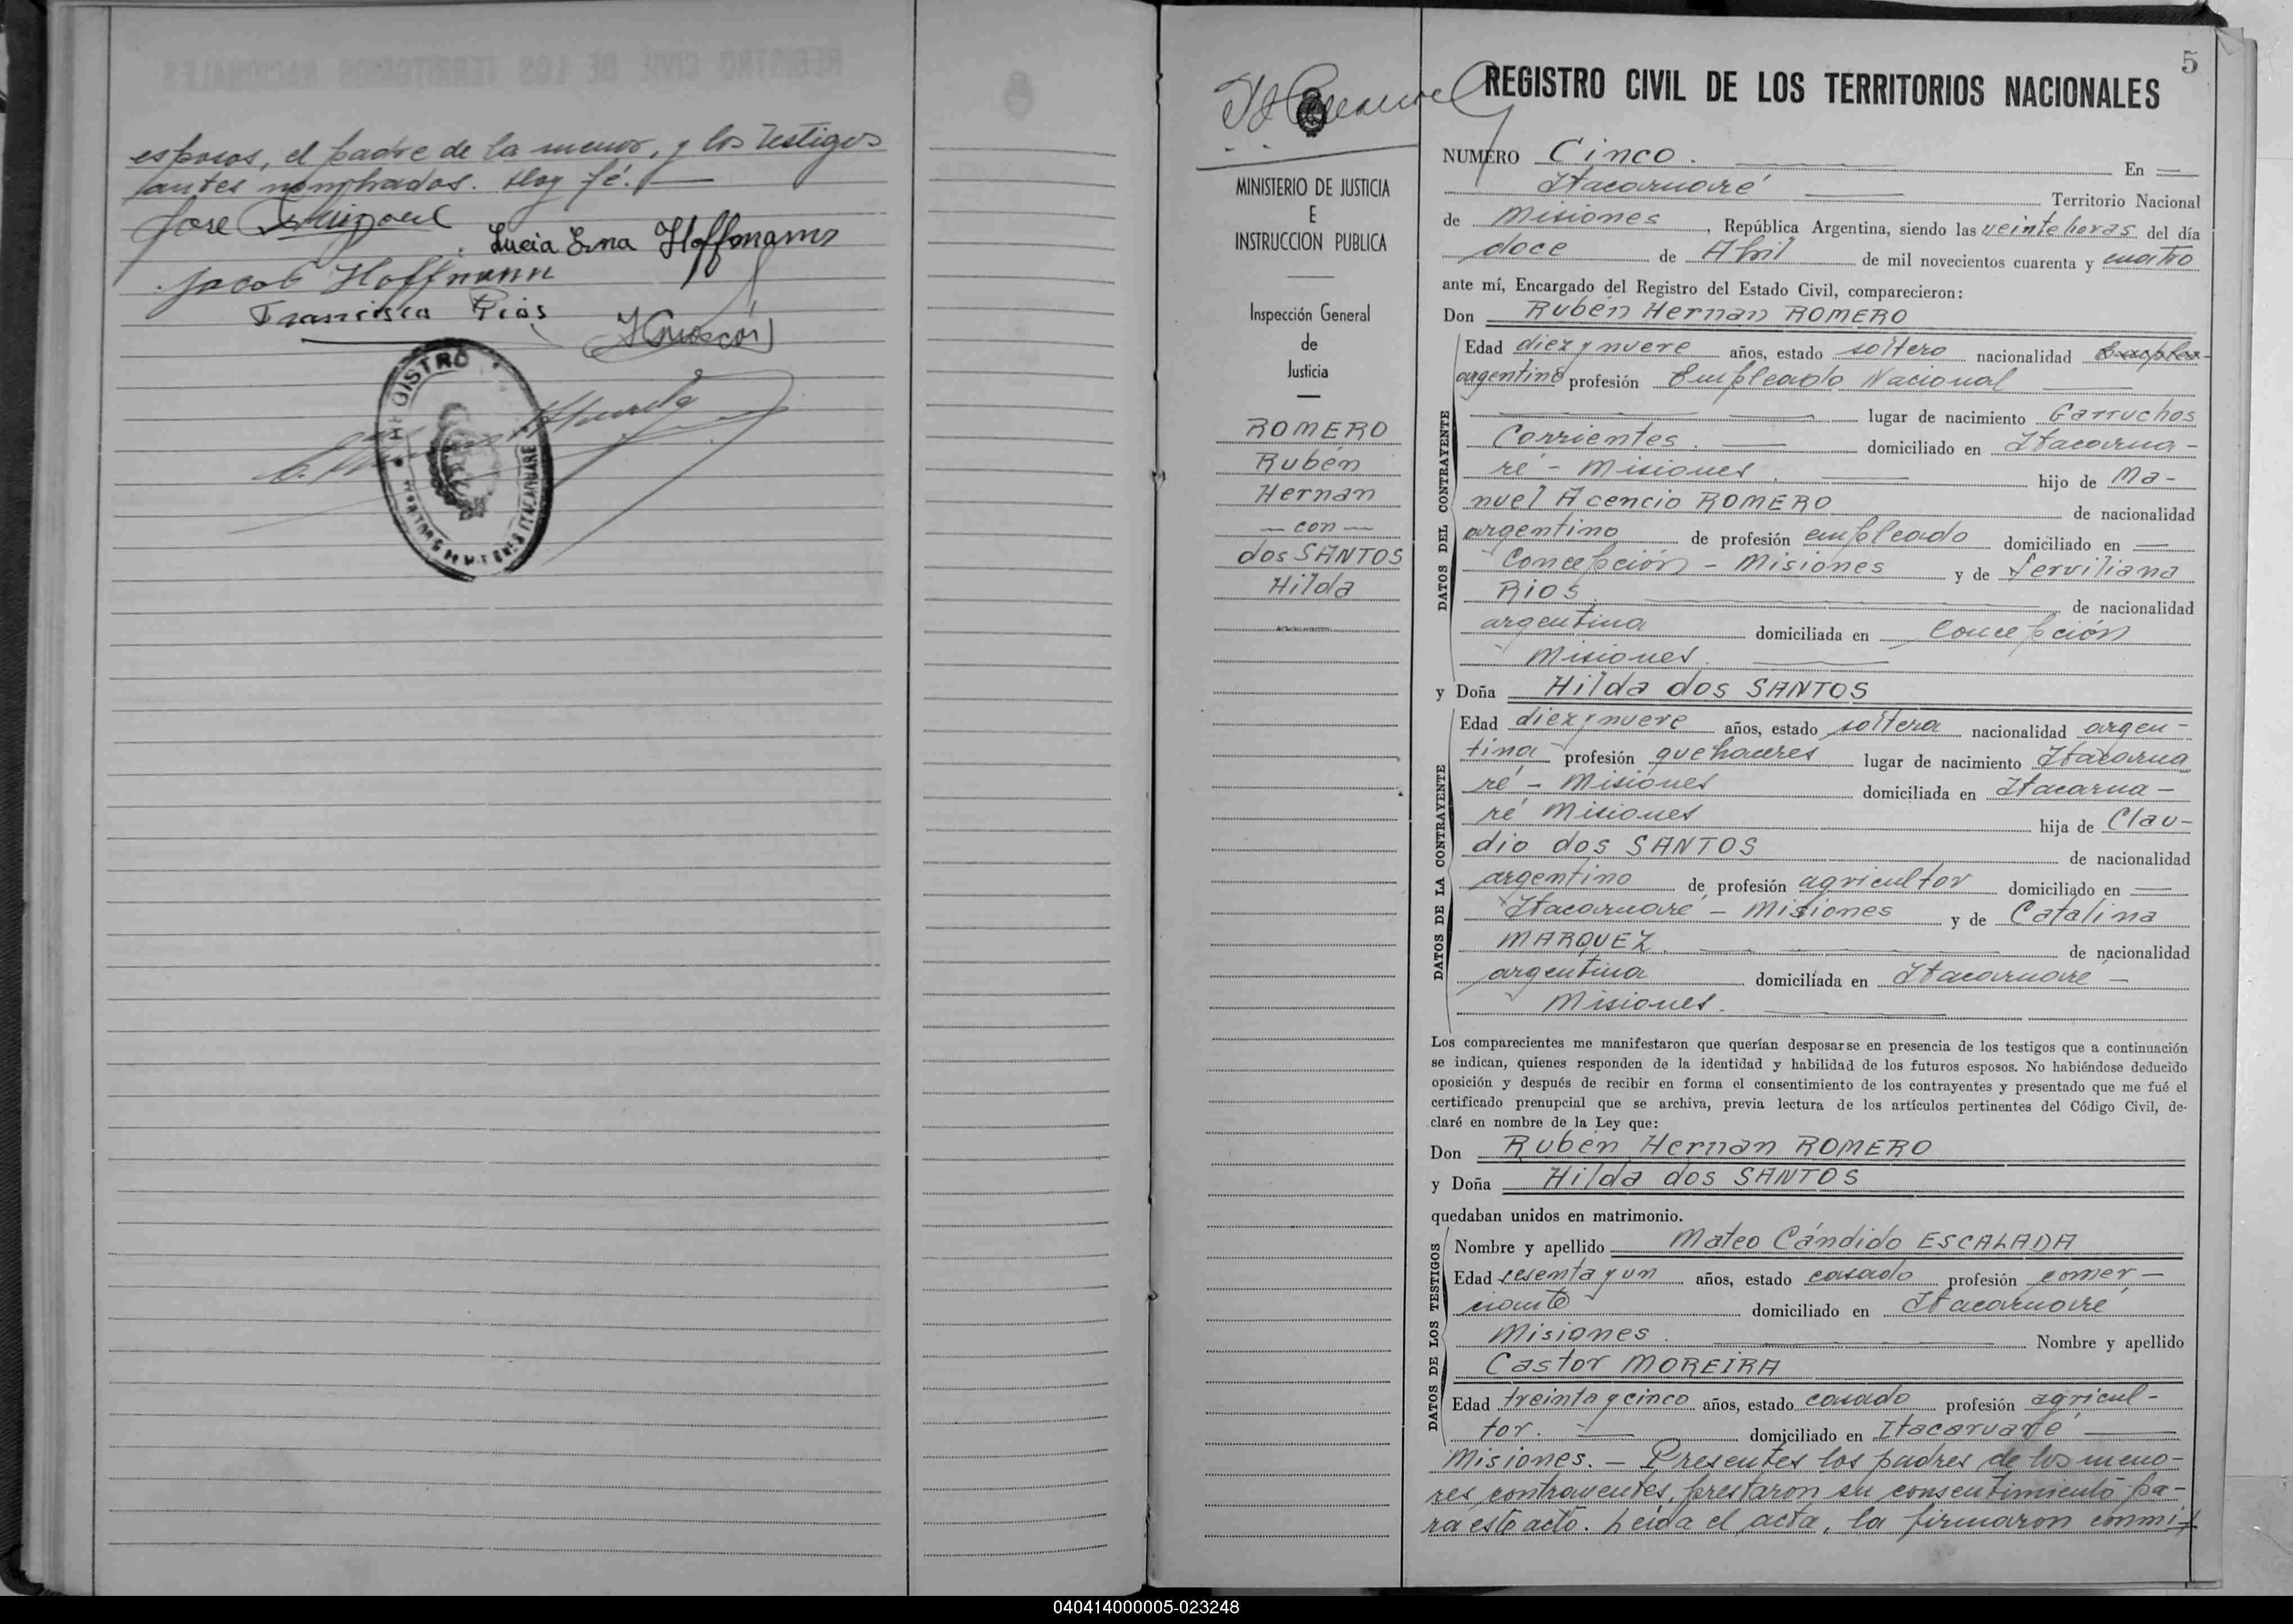 esposos, el padre de la menor, y los testigos
antes nombrados. Doy fé.
Jose
Lucia Erna Hoffmann
Jacob Hoffmann
Francisca Rios
REGISTRO
ITACARUARE
5
REGISTRO CIVIL DE LOS TERRITORIOS NACIONALES
MINISTERIO DE JUSTICIA
E
INSTRUCCION PUBLICA
Inspección General
de
Justicia
ROMERO
Rubén
Hernan
— con —
dos SANTOS
Hilda
NUMERO Cinco. En
Itacaruaré Territorio Nacional
de Misiones, República Argentina, siendo las veinte horas del día
doce de Abril de mil novecientos cuarenta y cuatro
ante mí, Encargado del Registro del Estado Civil, comparecieron:
Don Rubén Hernan ROMERO
DATOS DEL CONTRAYENTE
Edad diez y nueve años, estado soltero nacionalidad
argentino profesión Empleado Nacional
lugar de nacimiento Garruchos
Corrientes. domiciliado en Itacarua-
ré - Misiones. hijo de Ma-
nuel Acencio ROMERO de nacionalidad
argentino de profesión empleado domiciliado en
Concepción - Misiones y de Serviliana
RIOS de nacionalidad
argentina domiciliada en Concepción
Misiones.
y Doña Hilda dos SANTOS
DATOS DE LA CONTRAYENTE
Edad diez y nueve años, estado soltera nacionalidad argen-
tina profesión quehaceres lugar de nacimiento Itacarua
ré - Misiones domiciliada en Itacarua-
ré Misiones hija de Clau-
dio dos SANTOS de nacionalidad
argentino de profesión agricultor domiciliado en
Itacaruaré - Misiones y de Catalina
MARQUEZ. de nacionalidad
argentina domiciliada en Itacaruaré -
Misiones.
Los comparecientes me manifestaron que querían desposarse en presencia de los testigos que a continuación
se indican, quienes responden de la identidad y habilidad de los futuros esposos. No habiéndose deducido
oposición y después de recibir en forma el consentimiento de los contrayentes y presentado que me fué el
certificado prenupcial que se archiva, previa lectura de los artículos pertinentes del Código Civil, de-
claré en nombre de la Ley que:
Don Rubén Hernan ROMERO
y Doña Hilda dos SANTOS
quedaban unidos en matrimonio.
DATOS DE LOS TESTIGOS
Nombre y apellido Mateo Cándido ESCALADA
Edad sesenta y un años, estado casado profesión comer-
ciante domiciliado en Itacaruaré
Misiones. Nombre y apellido
Castor MOREIRA
Edad treinta y cinco años, estado casado profesión agricul-
tor. domiciliado en Itacaruaré
Misiones. - Presentes los padres de los meno-
res contrayentes, prestaron su consentimiento pa-
ra este acto. Leída el acta, la firmaron conmi-
040414000005-023248